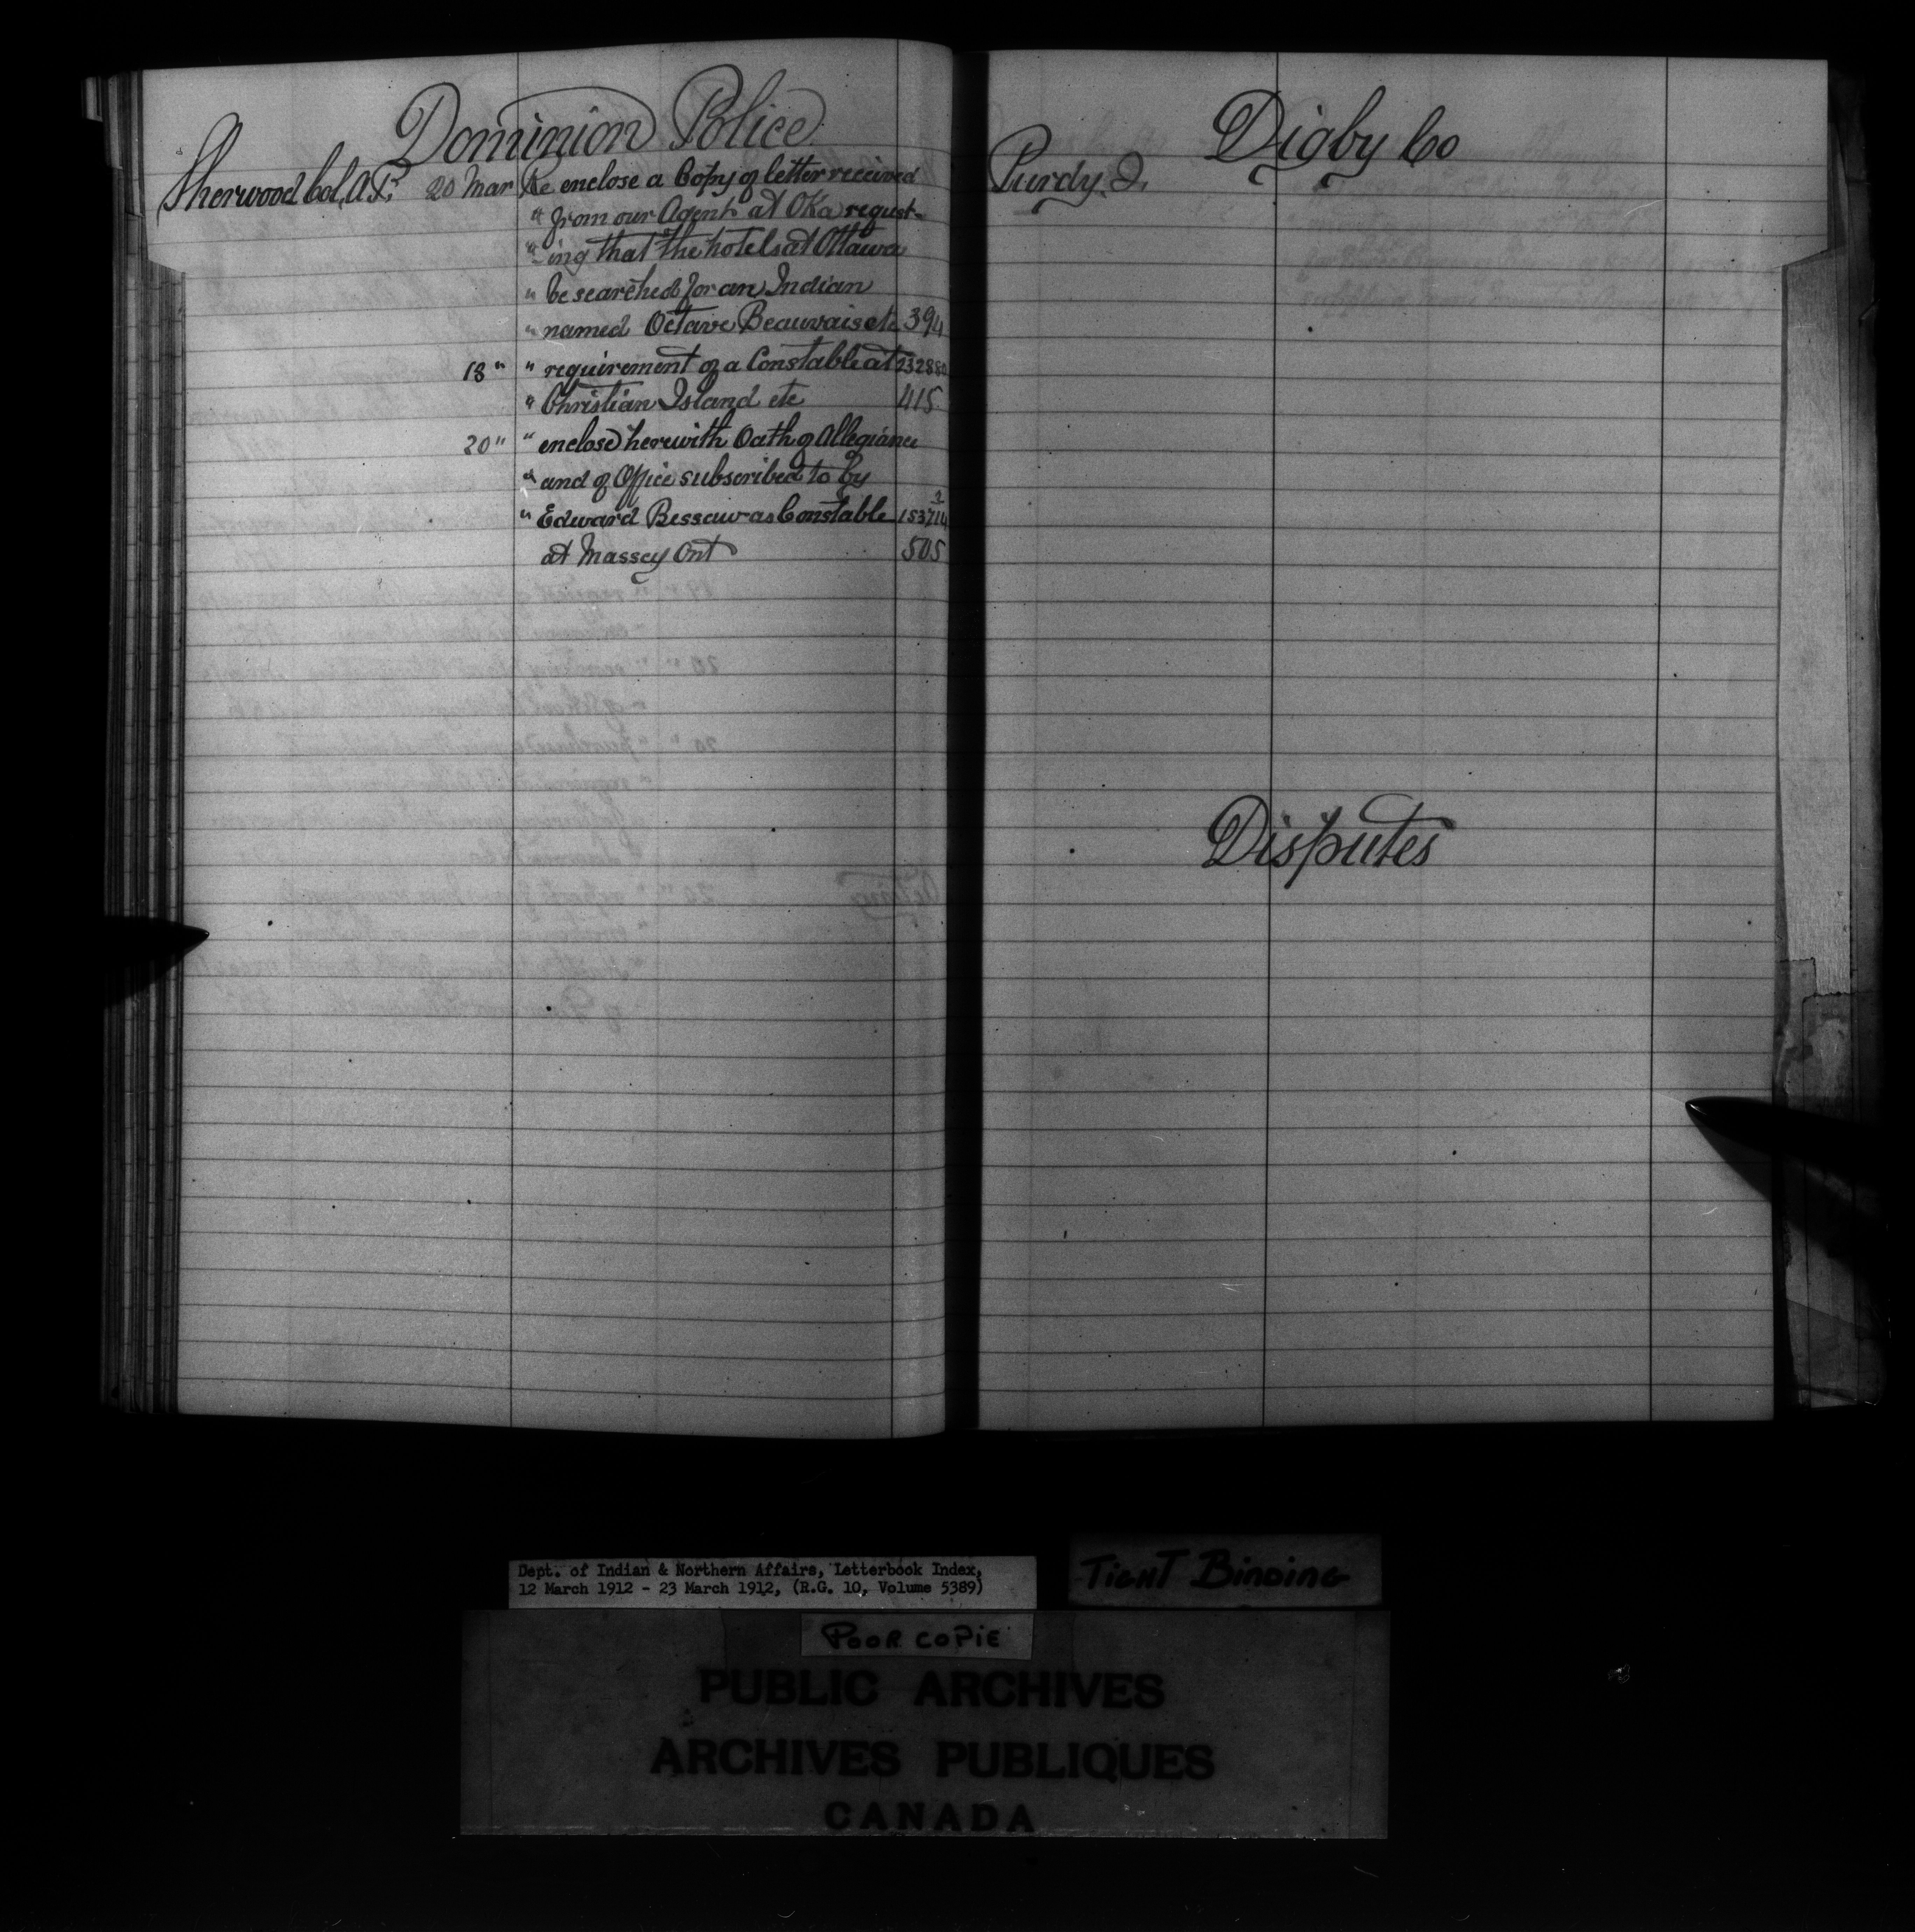 Dominion Police
Sherwood Col, A.P. 20 Mar Re enclose a Copy of letter received
" from our Agent at Oka request-
" ing that the hotels at Ottawa
" be searched for an Indian
" named Octave Beauvais etc 394
18 " " requirement of a Constable at 232880
" Christian Island etc 415
20 " " enclose herewith Oath of Allegiance
" and of Office subscribed to by
" Edward Bessaw as Constable 153714
at Massey Ont 505
Digby Co
Purdy. J.
Disputes
Dept. of Indian & Northern Affairs, Letterbook Index,
12 March 1912 - 23 March 1912, (R.G. 10, Volume 5389)
TIGHT BINDING
POOR COPIE
PUBLIC ARCHIVES
ARCHIVES PUBLIQUES
CANADA